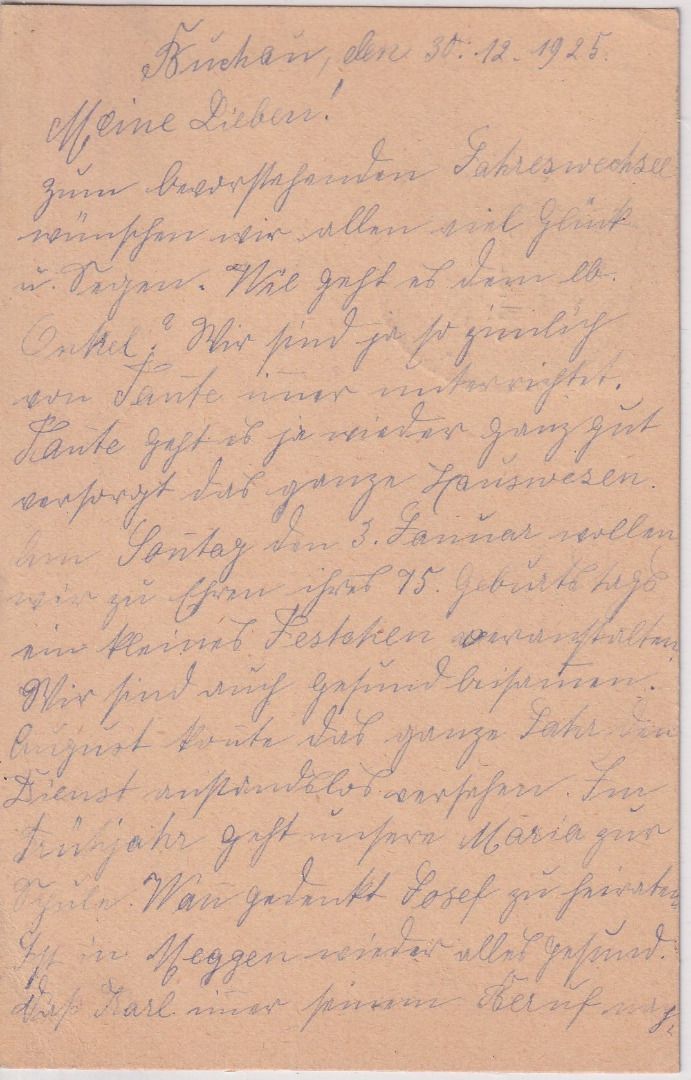 Buchau, den 30. 12. 1925.
Meine Lieben!
Zum bevorstehenden Jahreswechsel
wünschen wir allen viel Glück
u. Segen. Wie geht es dem lb.
Onkel? Wir sind ja so zimlich
von Tante im̅er unterrichtet.
Tante geht es ja wieder ganz gut
versorgt das ganze Hauswesen.
Am Son̅tag den 3. Januar wollen
wir zu Ehren ihres 75. Geburtstags
ein kleines Festchen veranstalten.
Wir sind auch gesund beisam̅en.
August kon̅te das ganze Jahr den
Dienst anstandslos versehen. Im
Frühjahr geht unsere Maria zur
Schule. Wan̅ gedenkt Josef zu heiraten
Ist in Meggen wieder alles gesund.
daß Karl im̅er seinem Beruf nach-